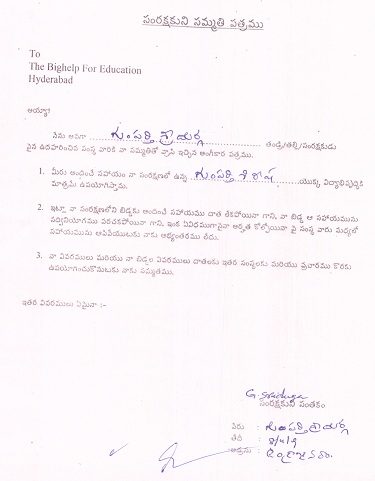 సంరక్షకుని సమ్మతి పత్రము
To
The Bighelp For Education
Hyderabad
అయ్యా!
నేను అనగా గుంపర్తి తండ్రి/తల్లి/సంరక్షకుడు
పైన ఉదహరించిన సంస్థ వారికి నా సమ్మతితో వ్రాసి ఇచ్చిన అంగీకార పత్రము.
1. మీరు అందించే సహాయం నా సంరక్షణలో ఉన్న గుంపర్తి శిరీష యొక్క విద్యాభివృద్ధికి
మాత్రమే ఉపయోగిస్తాను.
2. ఇట్లా నా సంరక్షణలోని బిడ్డకు అందించే సహాయము దాత తీసుకపోయినా గాని, నా బిడ్డ ఆ సహాయమును
సద్వినియోగము పరచకపోయినా గాని, ఇంక ఏవిధముగానైనా అర్హత కోల్పోయినా పై సంస్థ వారు మధ్యలో
సహాయమును ఆపివేయుటకు నాకు అభ్యంతరము లేదు.
3. నా వివరములు మరియు నా బిడ్డల వివరములు దాతలకు ఇతర సంస్థలకు మరియు ప్రచారము కొరకు
ఉపయోగించుకొనుటకు నాకు సమ్మతము.
ఇతర వివరములు ఏమైనా :-
సంరక్షకుని సంతకం
పేరు : గుంపర్తి
తేది :